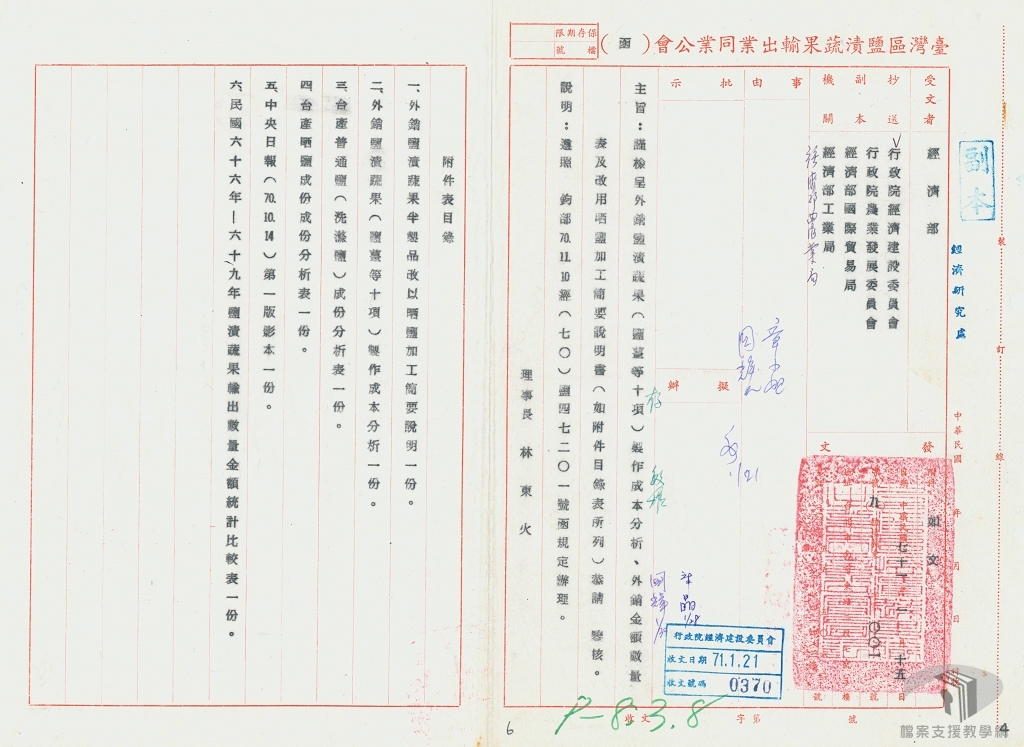 臺灣區鹽漬蔬果輸出業同業公會（函）
保存期限
檔號
受文者
經濟部
抄送副本機關
行政院經濟建設委員會
行政院農業發展委員會
經濟部國際貿易局
經濟部工業局
事由
批示
擬辦
發文
附件 如文
副本
經濟研究處
裝訂線
中華民國 年 月 日
主旨：謹檢呈外銷鹽漬蔬果（鹽薑等十項）製作成本分析、外銷金額數量
表及改用晒鹽加工簡要說明書（如附件目錄表所列）恭請　鑒核。
說明：遵照　鈞部70.11.10經（七〇）鹽四七二〇一號函規定辦理。
理事長 林東火
存
行政院經濟建設委員會
收文日期 71.1.21
收文號碼 0370
收文 字第 號
P-8-3.8
附件表目錄
一、外銷鹽漬蔬果半製品改以晒鹽加工簡要說明一份。
二、外銷鹽漬蔬果（鹽薑等十項）製作成本分析一份。
三、台產普通鹽（洗滌鹽）成份分析表一份。
四、台產晒鹽成份成份分析表一份。
五、中央日報（70.10.14）第一版影本一份。
六、民國六十六年—六十九年鹽漬蔬果輸出數量金額統計比較表一份。
6
4
檔案支援教學網